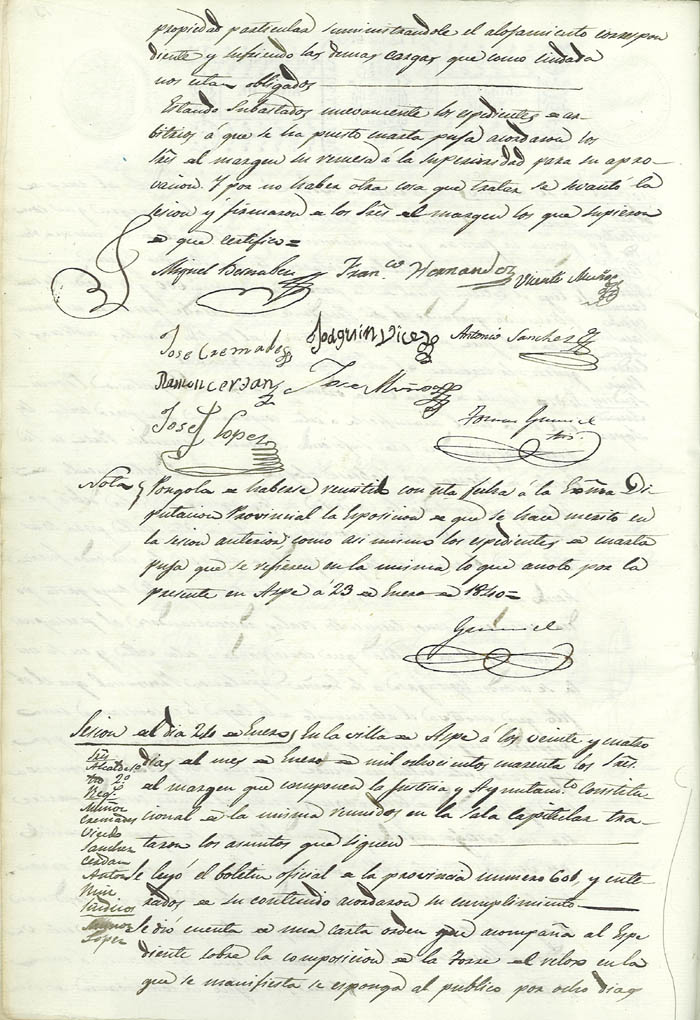 propiedad particular suministrandole el alojamiento correspon
diente y sufriendo las demas cargas que como ciudada
nos estan obligados
Estando subastados nuevamente los espedientes de ar-
bitrios á que se ha puesto cuarta puja acordaron los
Sres. al margen su remesa á la superioridad para su apro-
vacion. Y por no haber otra cosa que tratar se levantó la
sesion y firmaron de los Sres. del margen los que supieron
de que certifico=
Miguel Bernabeu Franco. Hernandez Vicente Muñoz
Jose Cremades Joaquin Vicedo Antonio Sanchez
Ramon cerdan Jose Muñoz
Jose Lopez Tomas
Nota Pongola de haberse remitido con esta fecha á la Exma Di
putacion Provincial la Esposicion de que se hace merito en
la sesion anterior, como asi mismo los espedientes de cuarta
puja que se refieren en la misma, lo que anoto por la
presente en Aspe á 23 de Enero de 1840=
Sesion del dia 24 de Enero, En la villa de Aspe á los veinte y cuatro
dias del mes de Enero de mil ochocientos cuarenta los Sres.
del margen que componen la Justicia y Ayuntamto. Constitu-
cional de la misma reunidos en la Sala Capitular tra-
taron los asuntos que siguen
Sres.
Alcaldes 1º
2º
Regs.
Muñoz
Cremades
Vicedo
Sanchez
Cerdan
Anton
Mire
Sindicos
Muñoz
Lopez
Se leyó el boletin oficial de la provincia numero 606, y ente-
rados de su contenido acordaron su cumplimiento
Se dió cuenta de una carta orden que acompaña al Espe
diente sobre la composicion de la Torre del relox en la
que se manifiesta se esponga al publico por ocho dias